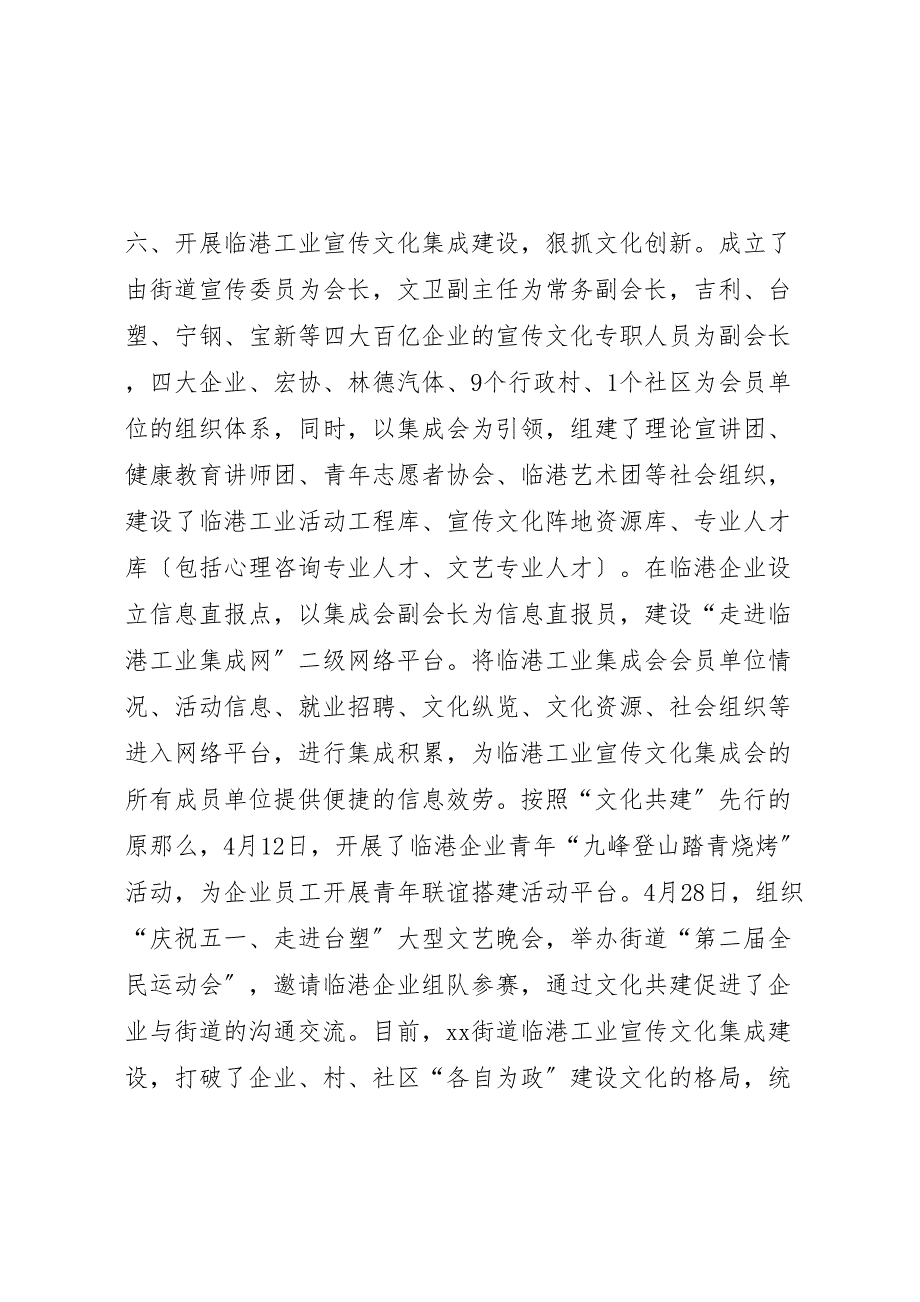 六、开展临港工业宣传文化集成建设，狠抓文化创新。成立了
由街道宣传委员为会长，文卫副主任为常务副会长，吉利、台
塑、宁钢、宝新等四大百亿企业的宣传文化专职人员为副会长
，四大企业、宏协、林德汽体、9个行政村、1个社区为会员单
位的组织体系，同时，以集成会为引领，组建了理论宣讲团、
健康教育讲师团、青年志愿者协会、临港艺术团等社会组织，
建设了临港工业活动工程库、宣传文化阵地资源库、专业人才
库〔包括心理咨询专业人才、文艺专业人才〕。在临港企业设
立信息直报点，以集成会副会长为信息直报员，建设“走进临
港工业集成网〞二级网络平台。将临港工业集成会会员单位情
况、活动信息、就业招聘、文化纵览、文化资源、社会组织等
进入网络平台，进行集成积累，为临港工业宣传文化集成会的
所有成员单位提供便捷的信息效劳。按照“文化共建〞先行的
原那么，4月12日，开展了临港企业青年“九峰登山踏青烧烤〞
活动，为企业员工开展青年联谊搭建活动平台。4月28日，组织
“庆祝五一、走进台塑〞大型文艺晚会，举办街道“第二届全
民运动会〞，邀请临港企业组队参赛，通过文化共建促进了企
业与街道的沟通交流。目前，xx街道临港工业宣传文化集成建
设，打破了企业、村、社区“各自为政〞建设文化的格局，统